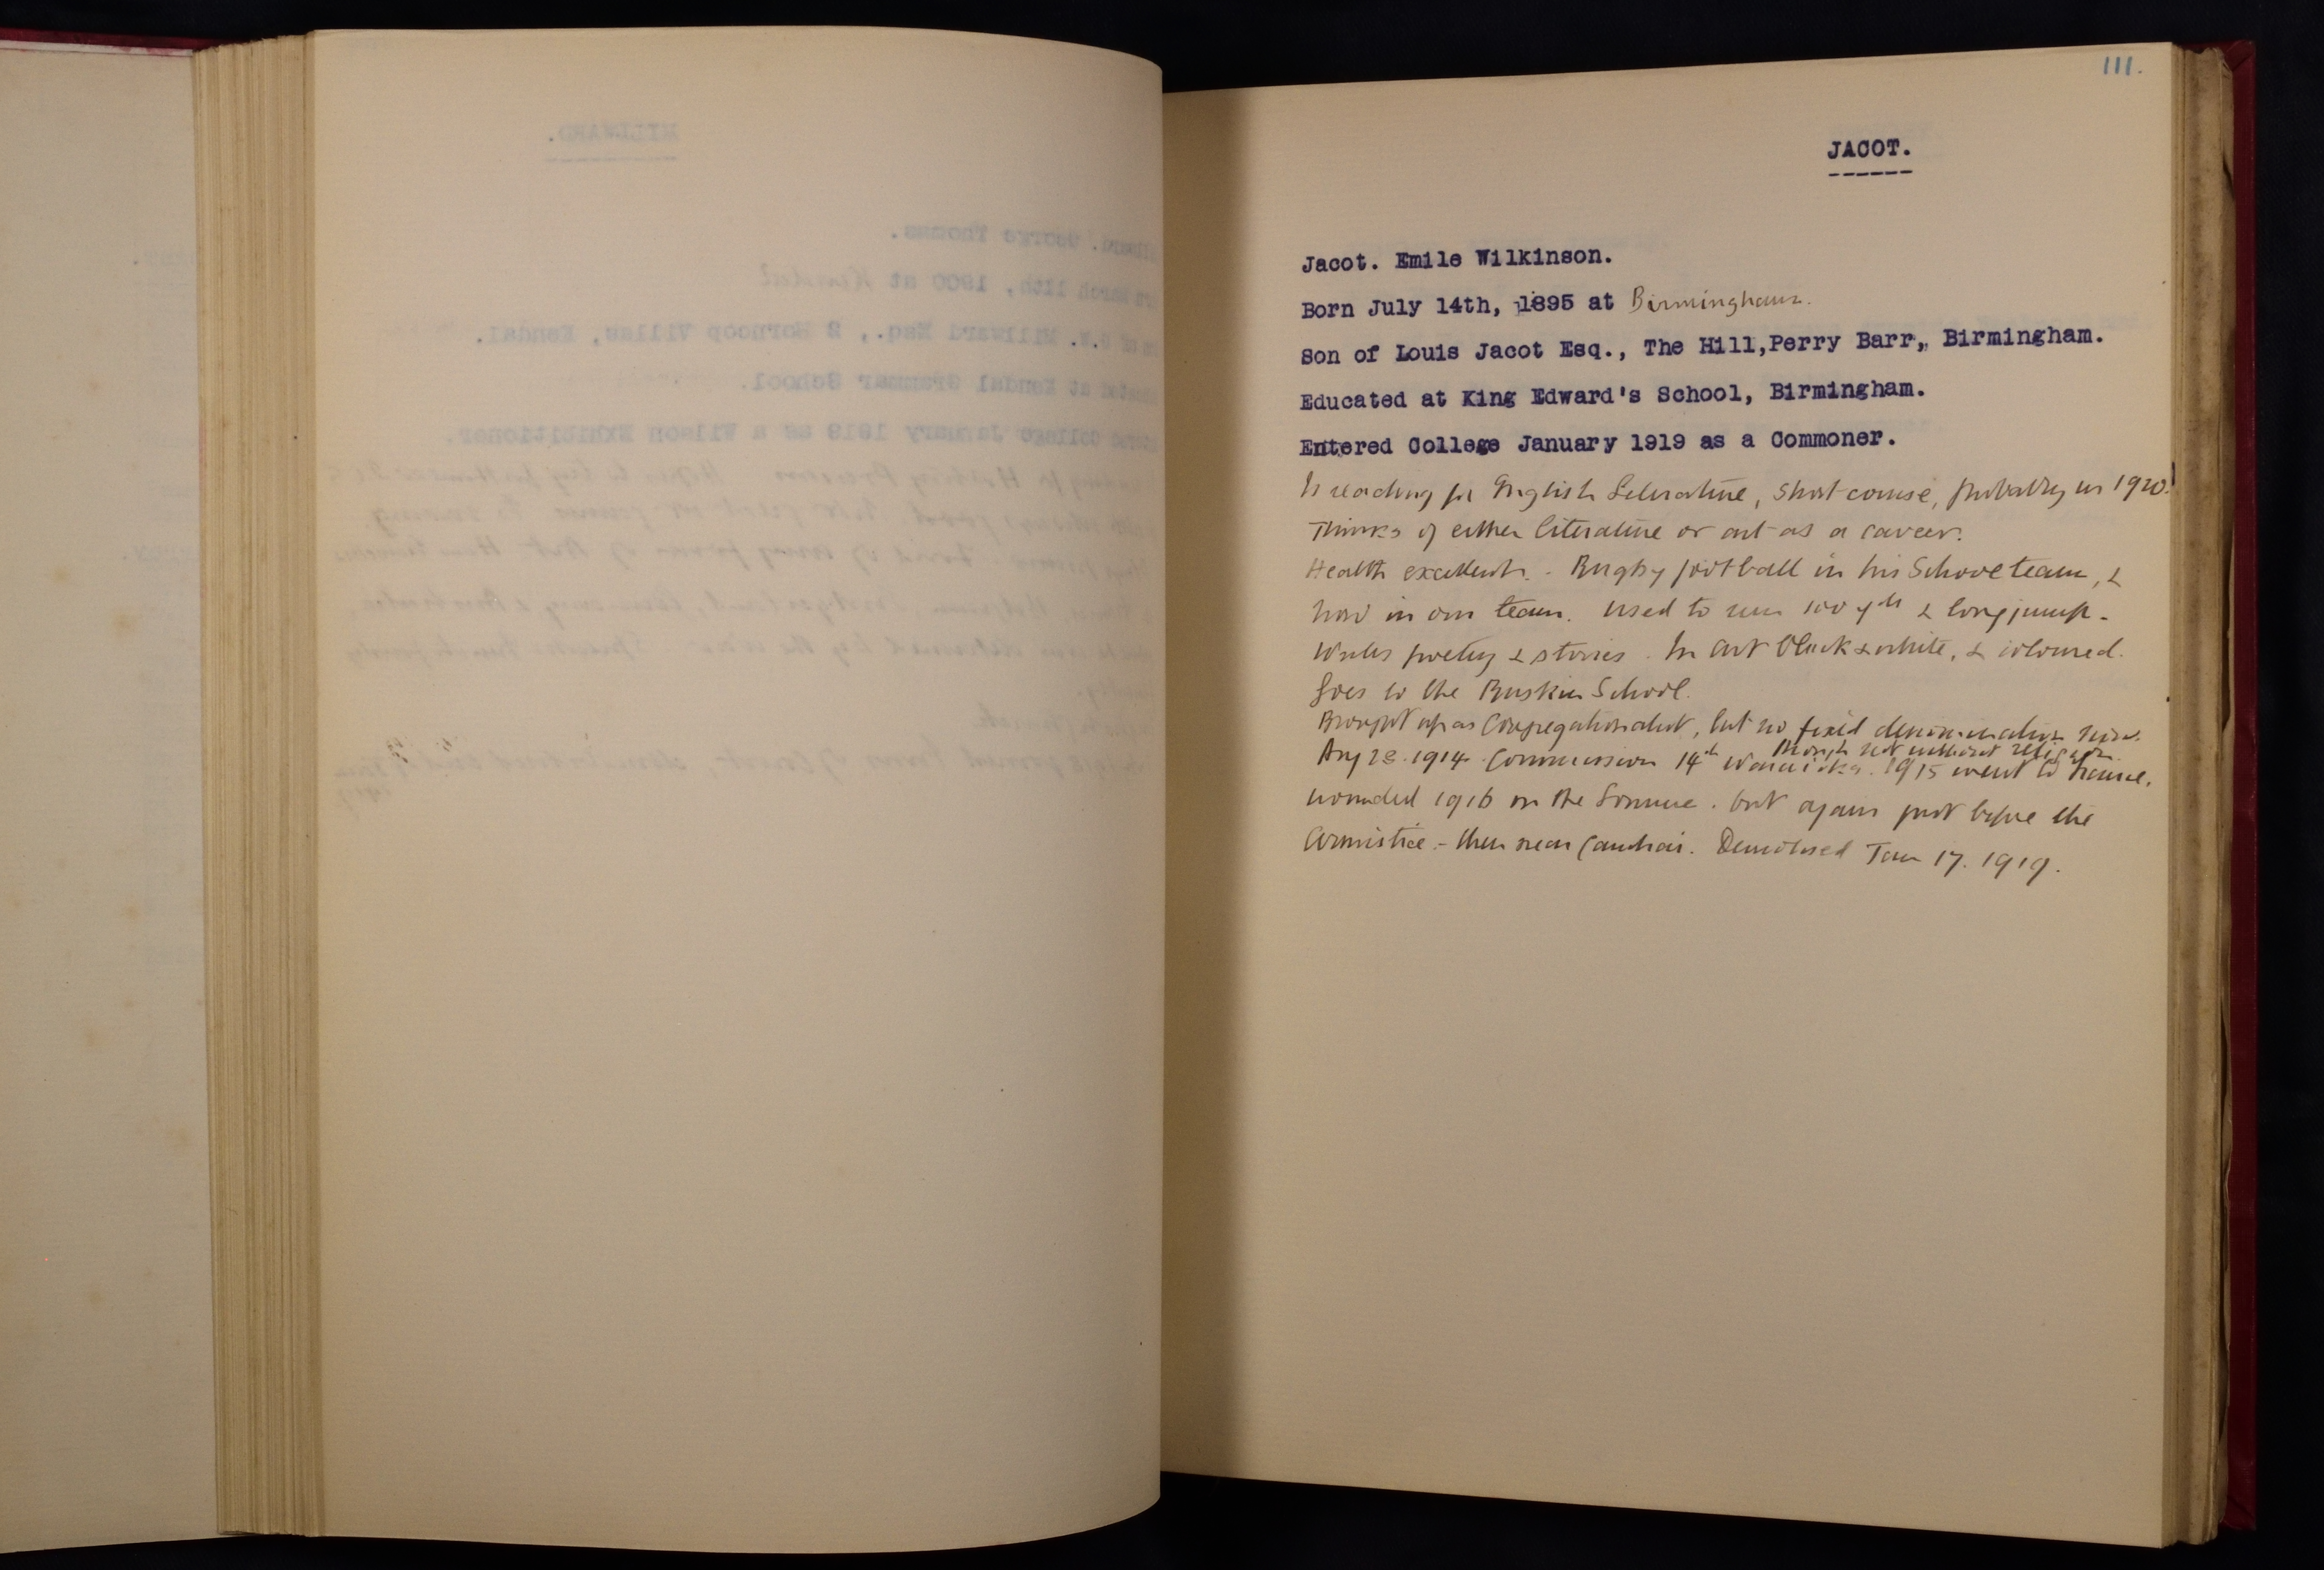 111.
JACOT.
Jacot. Emile Wilkinson.
Born July 14th, 1895 at Birmingham.
Son of Louis Jacot Esq., The Hill,Perry Barr, Birmingham.
Educated at King Edward's School, Birmingham.
Entered College January 1919 as a Commoner.
Is reading for English Literature, short course, probably in 1920.
Thinks of either literature or art as a career.
Health excellent. - Rugby football in his School team, &
now in our team. Used to run 100 yds & long jump.
Writes poetry & stories. In art black & white, & coloured.
Goes to the Ruskin School.
Brought up as Congregationalist, but no fixed denomination now.
though not without religion.
Aug 28. 1914. Commission 14th Warwicks. 1915 went to France.
wounded 1916 on the Somme. Out again just before the
Armistice - then near Cambrai. Demobbed Jan 17. 1919.